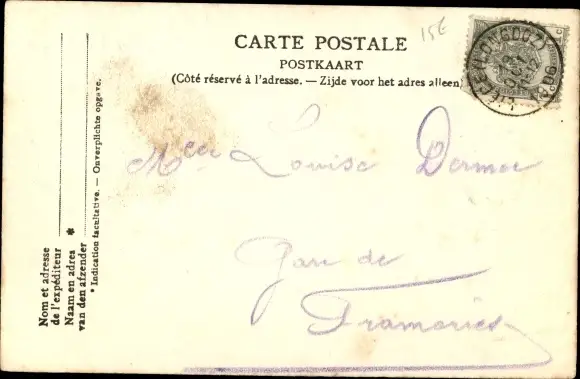 15€
CARTE POSTALE
POSTKAART
(Côté réservé à l'adresse. — Zijde voor het adres alleen)
Louise Dermoe
Gare de
Frameries
Nom et adresse
de l'expéditeur
Naam en adres *
van den afzender
* Indication facultative. — Onverplichte opgave.
LIÉGE (LONGDOZ)